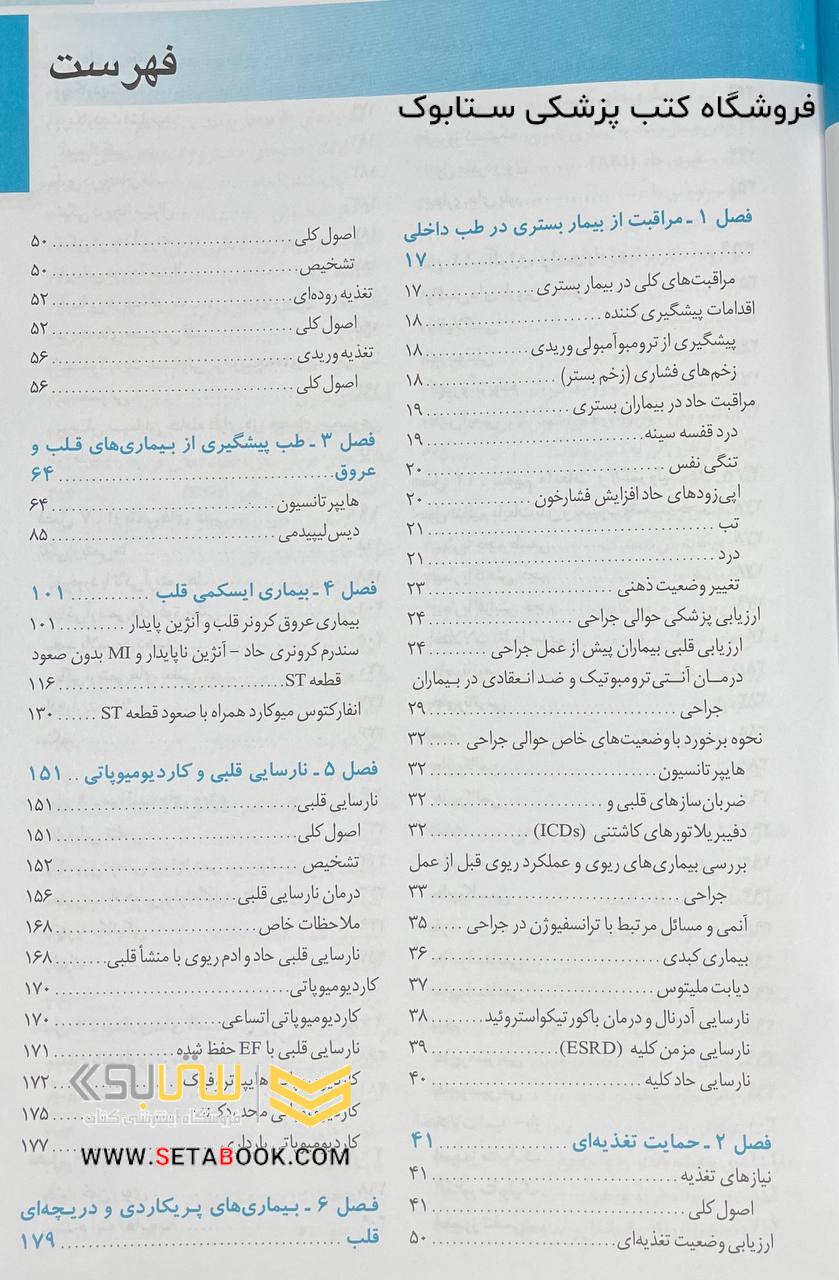 فهرست
فروشگاه کتب پزشکی ستابوک
فصل ۱ ـ مراقبت از بیمار بستری در طب داخلی
۱۷
مراقبت‌های کلی در بیمار بستری ۱۷
اقدامات پیشگیری کننده ۱۸
پیشگیری از ترومبوآمبولی وریدی ۱۸
زخم‌های فشاری (زخم بستر) ۱۸
مراقبت حاد در بیماران بستری ۱۹
درد قفسه سینه ۱۹
تنگی نفس ۲۰
اپی‌زودهای حاد افزایش فشارخون ۲۰
تب ۲۱
درد ۲۱
تغییر وضعیت ذهنی ۲۳
ارزیابی پزشکی حوالی جراحی ۲۴
ارزیابی قلبی بیماران پیش از عمل جراحی ۲۴
درمان آنتی‌ترومبوتیک و ضد انعقادی در بیماران
جراحی ۲۹
نحوه برخورد با وضعیت‌های خاص حوالی جراحی ۳۲
هایپرتانسیون ۳۲
ضربان‌سازهای قلبی و ۳۲
دفیبریلاتورهای کاشتنی (ICDs) ۳۲
بررسی بیماری‌های ریوی و عملکرد ریوی قبل از عمل
جراحی ۳۳
آنمی و مسائل مرتبط با ترانسفیوژن در جراحی ۳۵
بیماری کبدی ۳۶
دیابت ملیتوس ۳۷
نارسایی آدرنال و درمان باکورتیکواستروئید ۳۸
نارسایی مزمن کلیه (ESRD) ۳۹
نارسایی حاد کلیه ۴۰
فصل ۲ ـ حمایت تغذیه‌ای ۴۱
نیازهای تغذیه ۴۱
اصول کلی ۴۱
ارزیابی وضعیت تغذیه‌ای ۵۰
اصول کلی ۵۰
تشخیص ۵۰
تغذیه روده‌ای ۵۲
اصول کلی ۵۲
تغذیه وریدی ۵۶
اصول کلی ۵۶
فصل ۳ ـ طب پیشگیری از بیماری‌های قلب و
عروق ۶۴
هایپرتانسیون ۶۴
دیس‌لیپیدمی ۸۵
فصل ۴ ـ بیماری ایسکمی قلب ۱۰۱
بیماری عروق کرونر قلب و آنژین پایدار ۱۰۱
سندرم کرونری حاد – آنژین ناپایدار و MI بدون صعود
قطعه ST ۱۱۶
انفارکتوس میوکارد همراه با صعود قطعه ST ۱۳۰
فصل ۵ ـ نارسایی قلبی و کاردیومیوپاتی ۱۵۱
نارسایی قلبی ۱۵۱
اصول کلی ۱۵۱
تشخیص ۱۵۲
درمان نارسایی قلبی ۱۵۶
ملاحظات خاص ۱۶۸
نارسایی قلبی حاد و ادم ریوی با منشأ قلبی ۱۶۸
کاردیومیوپاتی ۱۷۰
کاردیومیوپاتی اتساعی ۱۷۰
نارسایی قلبی با EF حفظ شده ۱۷۱
کاردیومیوپاتی هایپرتروفیک ۱۷۲
کاردیومیوپاتی محدودکننده ۱۷۵
کاردیومیوپاتی بارداری ۱۷۷
ستابوک
فروشگاه اینترنتی کتاب
WWW.SETABOOK.COM
فصل ۶ ـ بیماری‌های پریکاردی و دریچه‌ای
قلب ۱۷۹